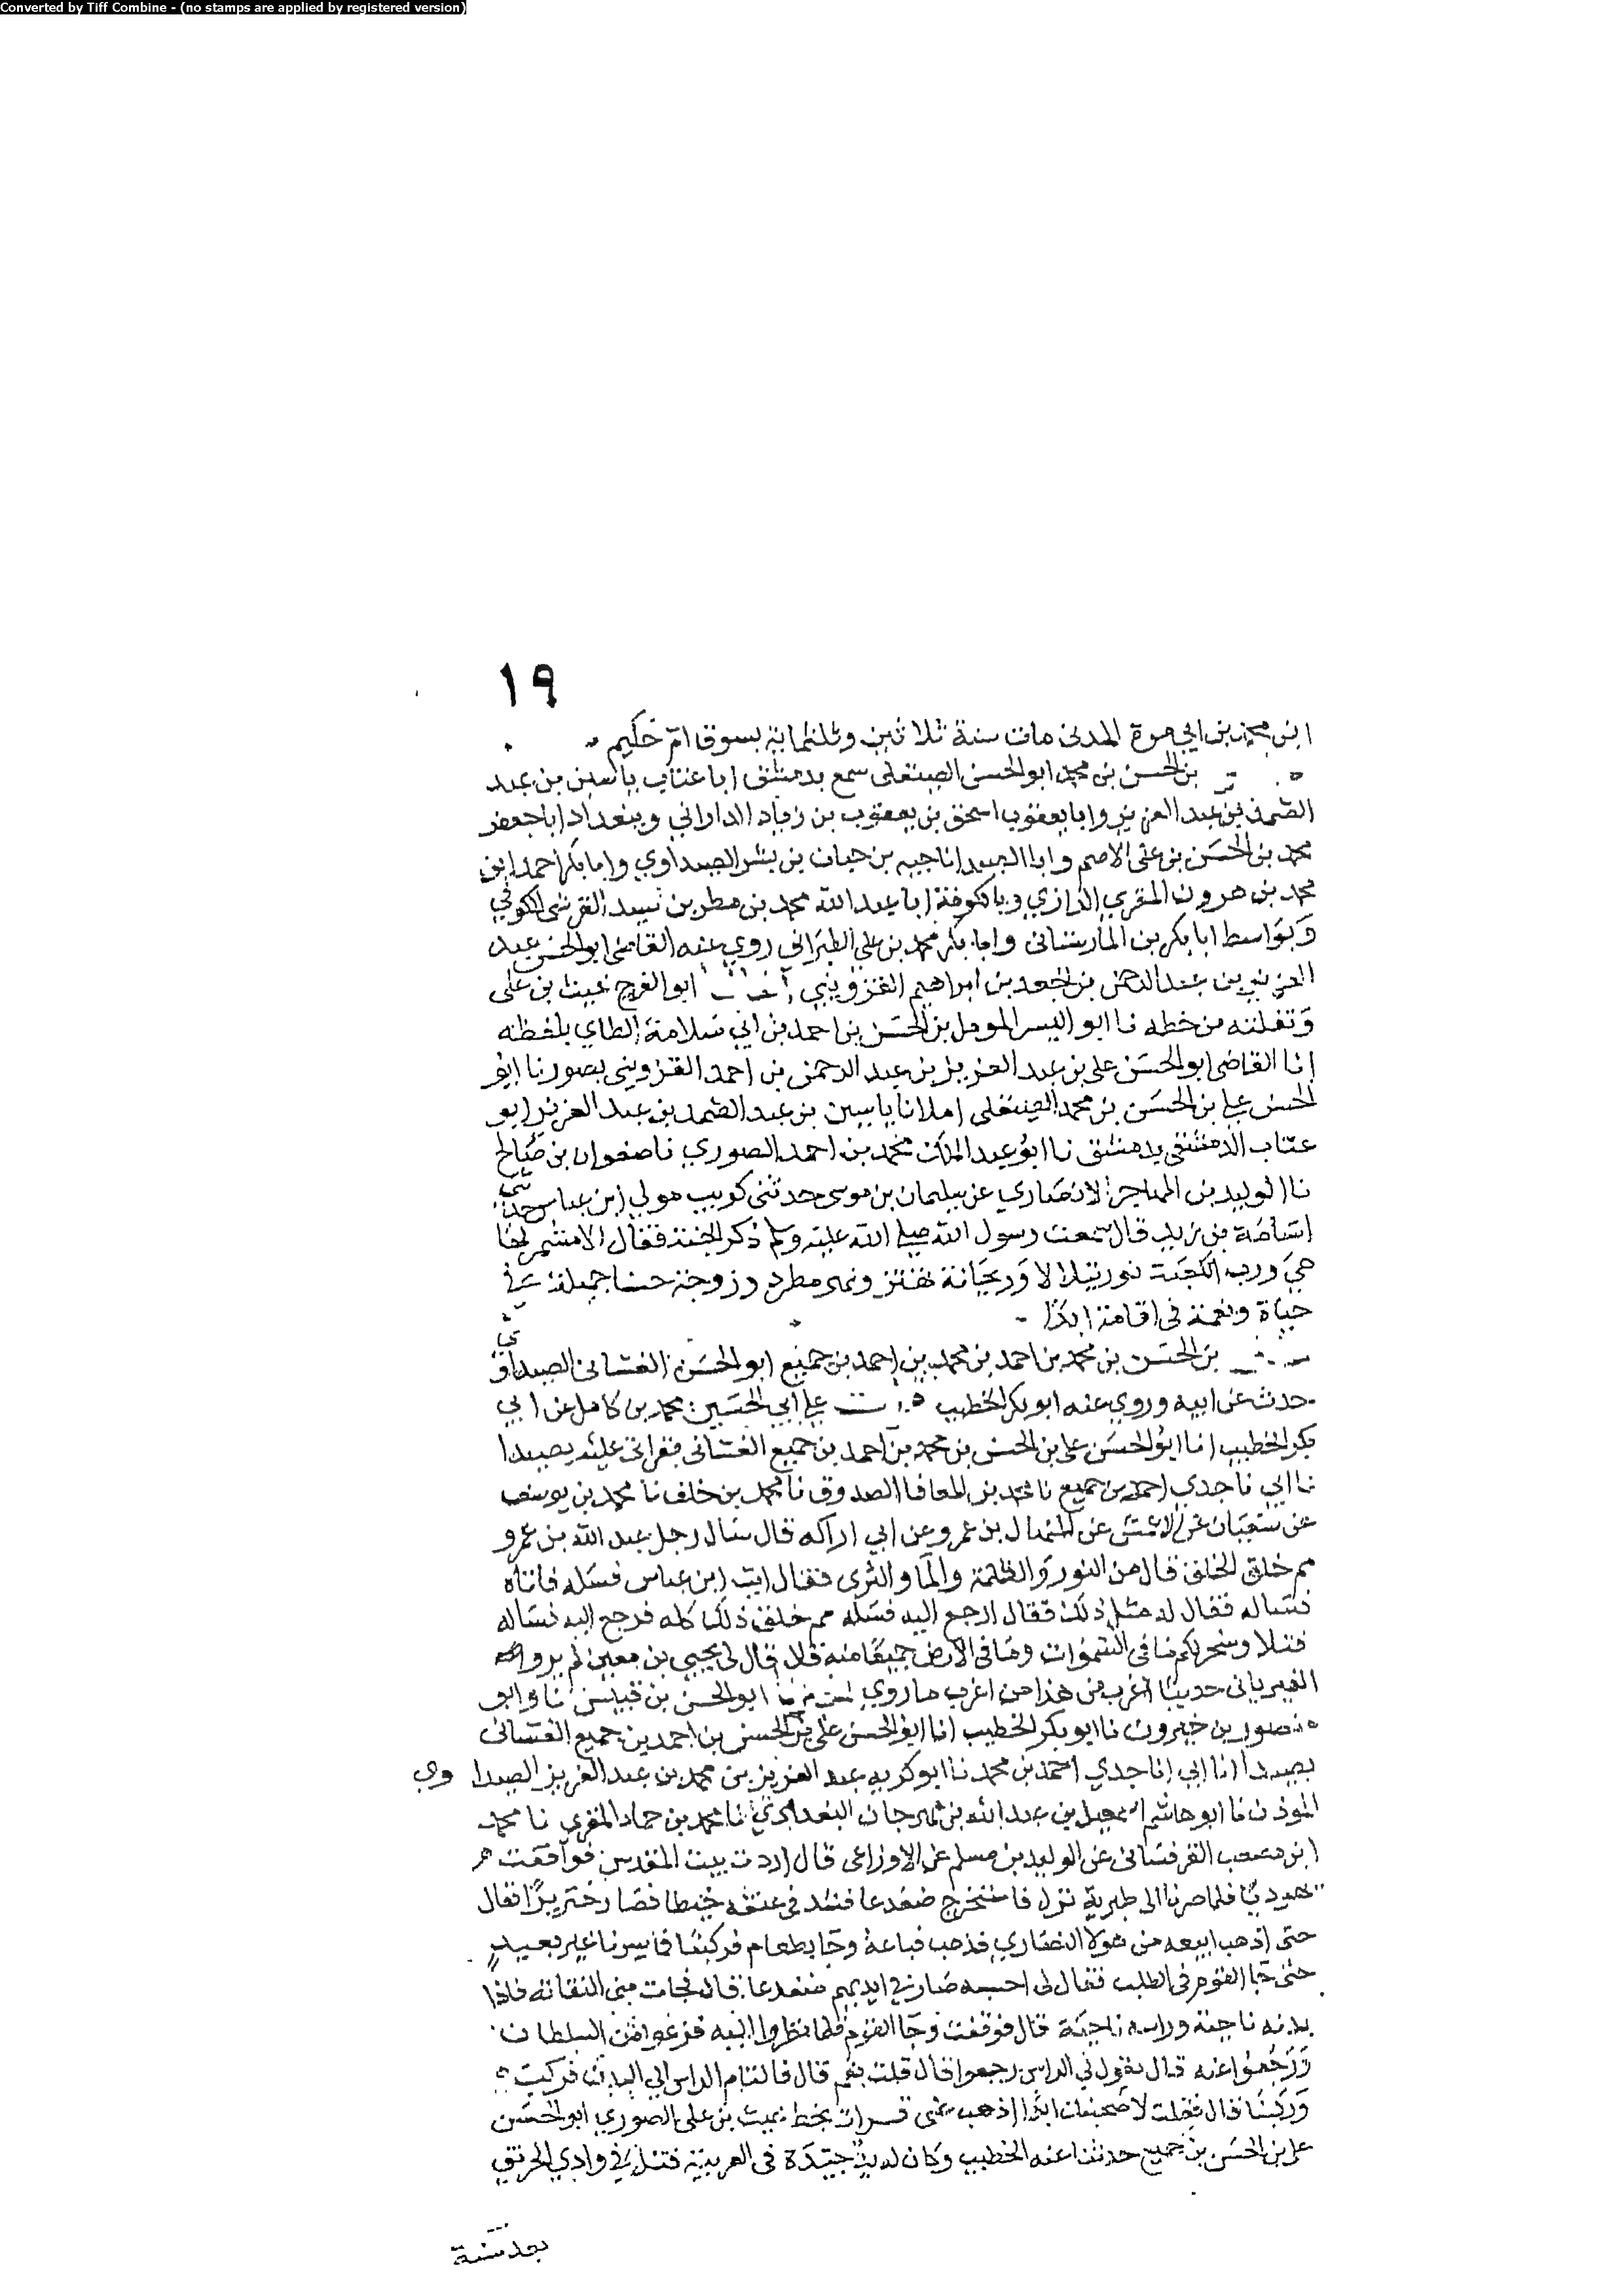 Converted by Tiff Combine - (no stamps are applied by registered version)
١٩
ابن محمد بن ابي مرة المدنى مات سنة ثلاثين وثلثماية بسوق ام حكيم
بن الحسن بن محمد ابو الحسن الصيقلى سمع بدمشق ابا عتاب ياسين بن عبد
الصمد بن عبد العزيز وابا يعقوب اسحق بن يعقوب بن زياد الداراني وببغداد ابا جعفر
محمد بن الحسن بن على الاصم وابا ناجيه بن حيان بن بشر الصيداوي وابا بكر احمد ابن
محمد بن هرون المقري الرازي وبالكوفة ابا عبد الله محمد بن مطر بن القرشى الكوفي
وبواسط ابا بكر بن المارستانى وابا بكر محمد بن على الطبراني روي عنه القاضى ابو الحسن عبد
العزيز بن عبد الرحمن بن الجعد بن ابراهيم القزوينى ابو الفرج غيث بن على
ونقلته من خطه نا ابو اليسر المومل بن الحسن بن احمد بن ابي سلامة الطاي بلفظه
انا القاضى ابو الحسن على بن عبد العزيز بن عبد الرحمن بن احمد القزوينى بصور نا ابو
الحسن على بن الحسن بن محمد الصيقلى املا نا ياسين بن عبد الصمد بن عبد العزيز ابو
عتاب الدمشقى بدمشق نا ابو عبد الملك محمد بن احمد الصوري نا صفوان بن صالح
نا الوليد بن المهاجر الانصاري عن سليمان بن موسى حدثنى كريب مولي ابن عباس حدثنى
اسامة بن زيد قال سمعت رسول الله صلى الله عليه وسلم ذكر الجنة فقال الا مشمر لها
هي ورب الكعبة نور يتلالا وريحانة تهتز ونهر مطرد وزوجة حسنا جميلة في
حياة ونعمة فى اقامة ابدا
بن الحسن بن محمد بن احمد بن محمد بن احمد بن جميع ابو الحسن الغسانى الصيداوي
حدث عن ابيه وروي عنه ابو بكر الخطيب على ابي الحسين محمد بن كامل عن ابي
بكر الخطيب انا ابو الحسن على بن الحسن بن محمد بن احمد بن جميع الغسانى بقراتى عليه بصيدا
نا ابي نا جدي احمد بن جميع نا محمد بن المعافا الصدوق نا محمد بن خلف نا محمد بن يوسف
عن سفيان عن الاعمش عن المنهال بن عمرو عن ابي اراكه قال سال رجل عبد الله بن عمرو
مم خلق الخلق قال من النور والظلمة والما والثرى فقال ايت ابن عباس فسله فاتاه
فساله فقال له مثل ذلك فقال ارجع اليه فسله مم خلق ذلك كله فرجع اليه فساله
فتلا وسخر لكم ما فى السموات وما فى الارض جميعا منه قال قال لى يحيى بن معين لم يرو
الفيريانى حديثا اغرب من هذا من اغرب ما روي ابو الحسن بن قبيس نا وابو
منصور بن خيرون نا ابو بكر الخطيب انا ابو الحسن على بن الحسن بن احمد بن جميع الغسانى
بصيدا انا ابي انا جدي احمد بن محمد نا ابو كريب عبد العزيز بن محمد بن عبد العزيز الصيداوي
الموذن نا ابو هاشم اسمعيل بن عبد الله بن مهرجان البغدادي نا محمد بن حماد المقري نا محمد
ابن مصعب القرقسانى عن الوليد بن مسلم عن الاوزاعى قال اردت بيت المقدس فوافقت
يهوديا فلما صرنا الى طبرية نزل فاستخرج ضفدعا فشد فى عنقه خيطا فصار خنزيرا فقال
حتى اذهب ابيعه من هولا النصاري فذهب فباعه وجا بطعام فركبنا فما سرنا غير بعيد
حتى جا القوم فى الطلب فقال لى احسبه صار في ايديهم ضفدعا قال فحانت منى التفاته فاذا
بدنه ناحية وراسه ناحية قال فوقفت وجا القوم فلما نظروا اليه فزعوا من السلطان
ورجعوا عنه قال يقول لي الراس رجعوا قال قلت نعم قال فالتام الراس الى البدن فركب
وركبنا قال فقلت لا صحبتك ابدا اذهب عنى قرات بخط غيث بن على الصوري ابو الحسن
على بن الحسن بن جميع حدثنا عنه الخطيب وكان له يد جيدة فى العربية قتل في وادي الحريق
بعد سنة